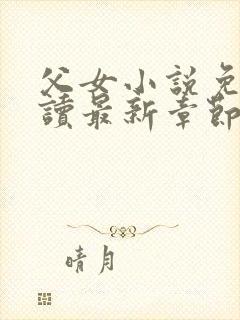 父女小說免
讀最新章節
晴月